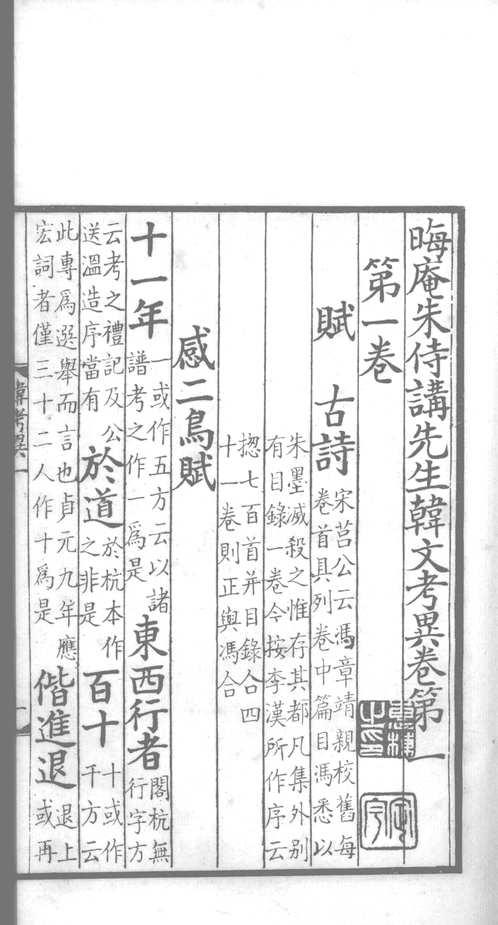 晦庵朱侍講先生韓文考異卷第一
第一卷
賦 古詩 宋莒公云馮章靖親校舊每
卷首具列卷中篇目馮悉以
朱墨滅殺之惟存其都凡集外别
有目錄一卷今按李漢所作序云
揔七百首并目錄合四
十一卷則正與馮合
感二鳥賦
十一年 一或作五方云以諸
譜考之作一爲是 東西行者 閣杭無
行字方
云考之禮記及公
送溫造序當有 於道 於杭本作
之非是 百十 十或作
千方云
此專爲選舉而言也貞元九年應
宏詞者僅三十二人作十爲是 偕進退 退上
或再
韓考異一